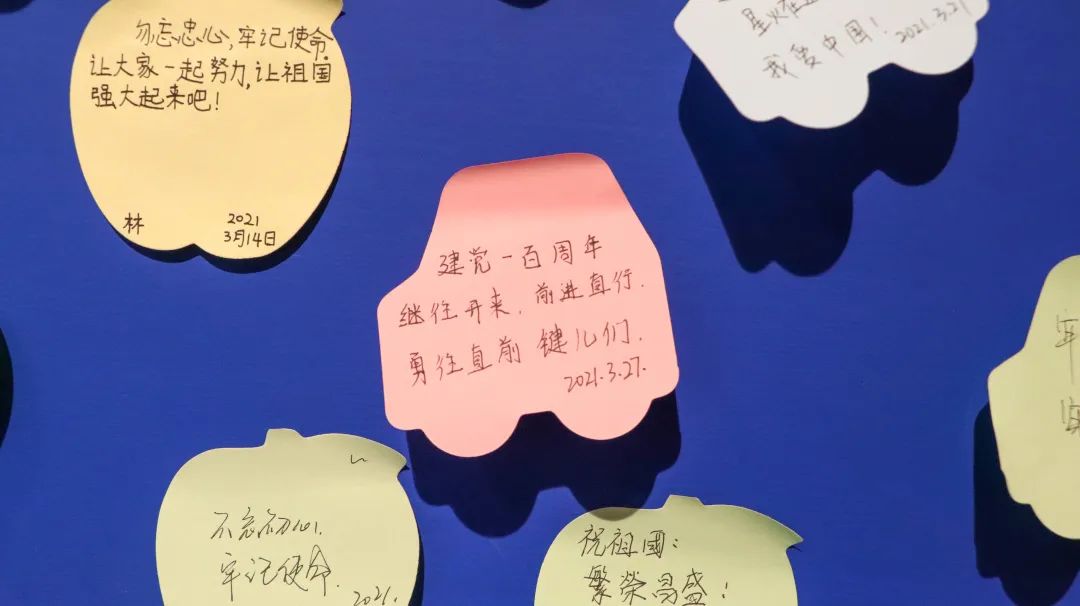 勿忘忠心,牢记使命
让大家一起努力,让祖国
强大起来吧!
林
2021
3月14日
我爱中国!
2021.3.21
建党一百周年
继往开来,前进直行.
勇往直前 键儿们.
2021.3.27.
不忘初心,
牢记使命.
2021.
祝祖國:
繁榮昌盛!
牢